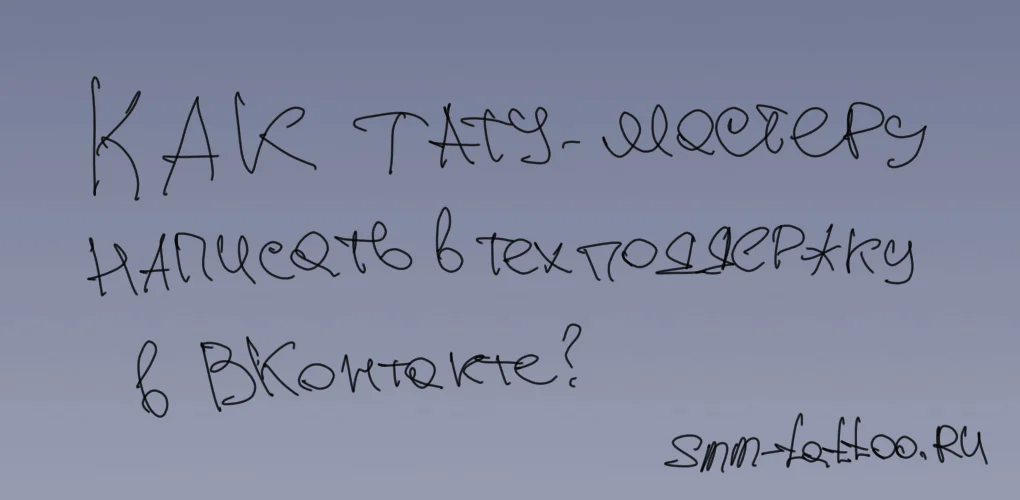 КАК ТАТУ-мастеру
написать в техподдержку
в ВКонтакте?
smm-tattoo.RU